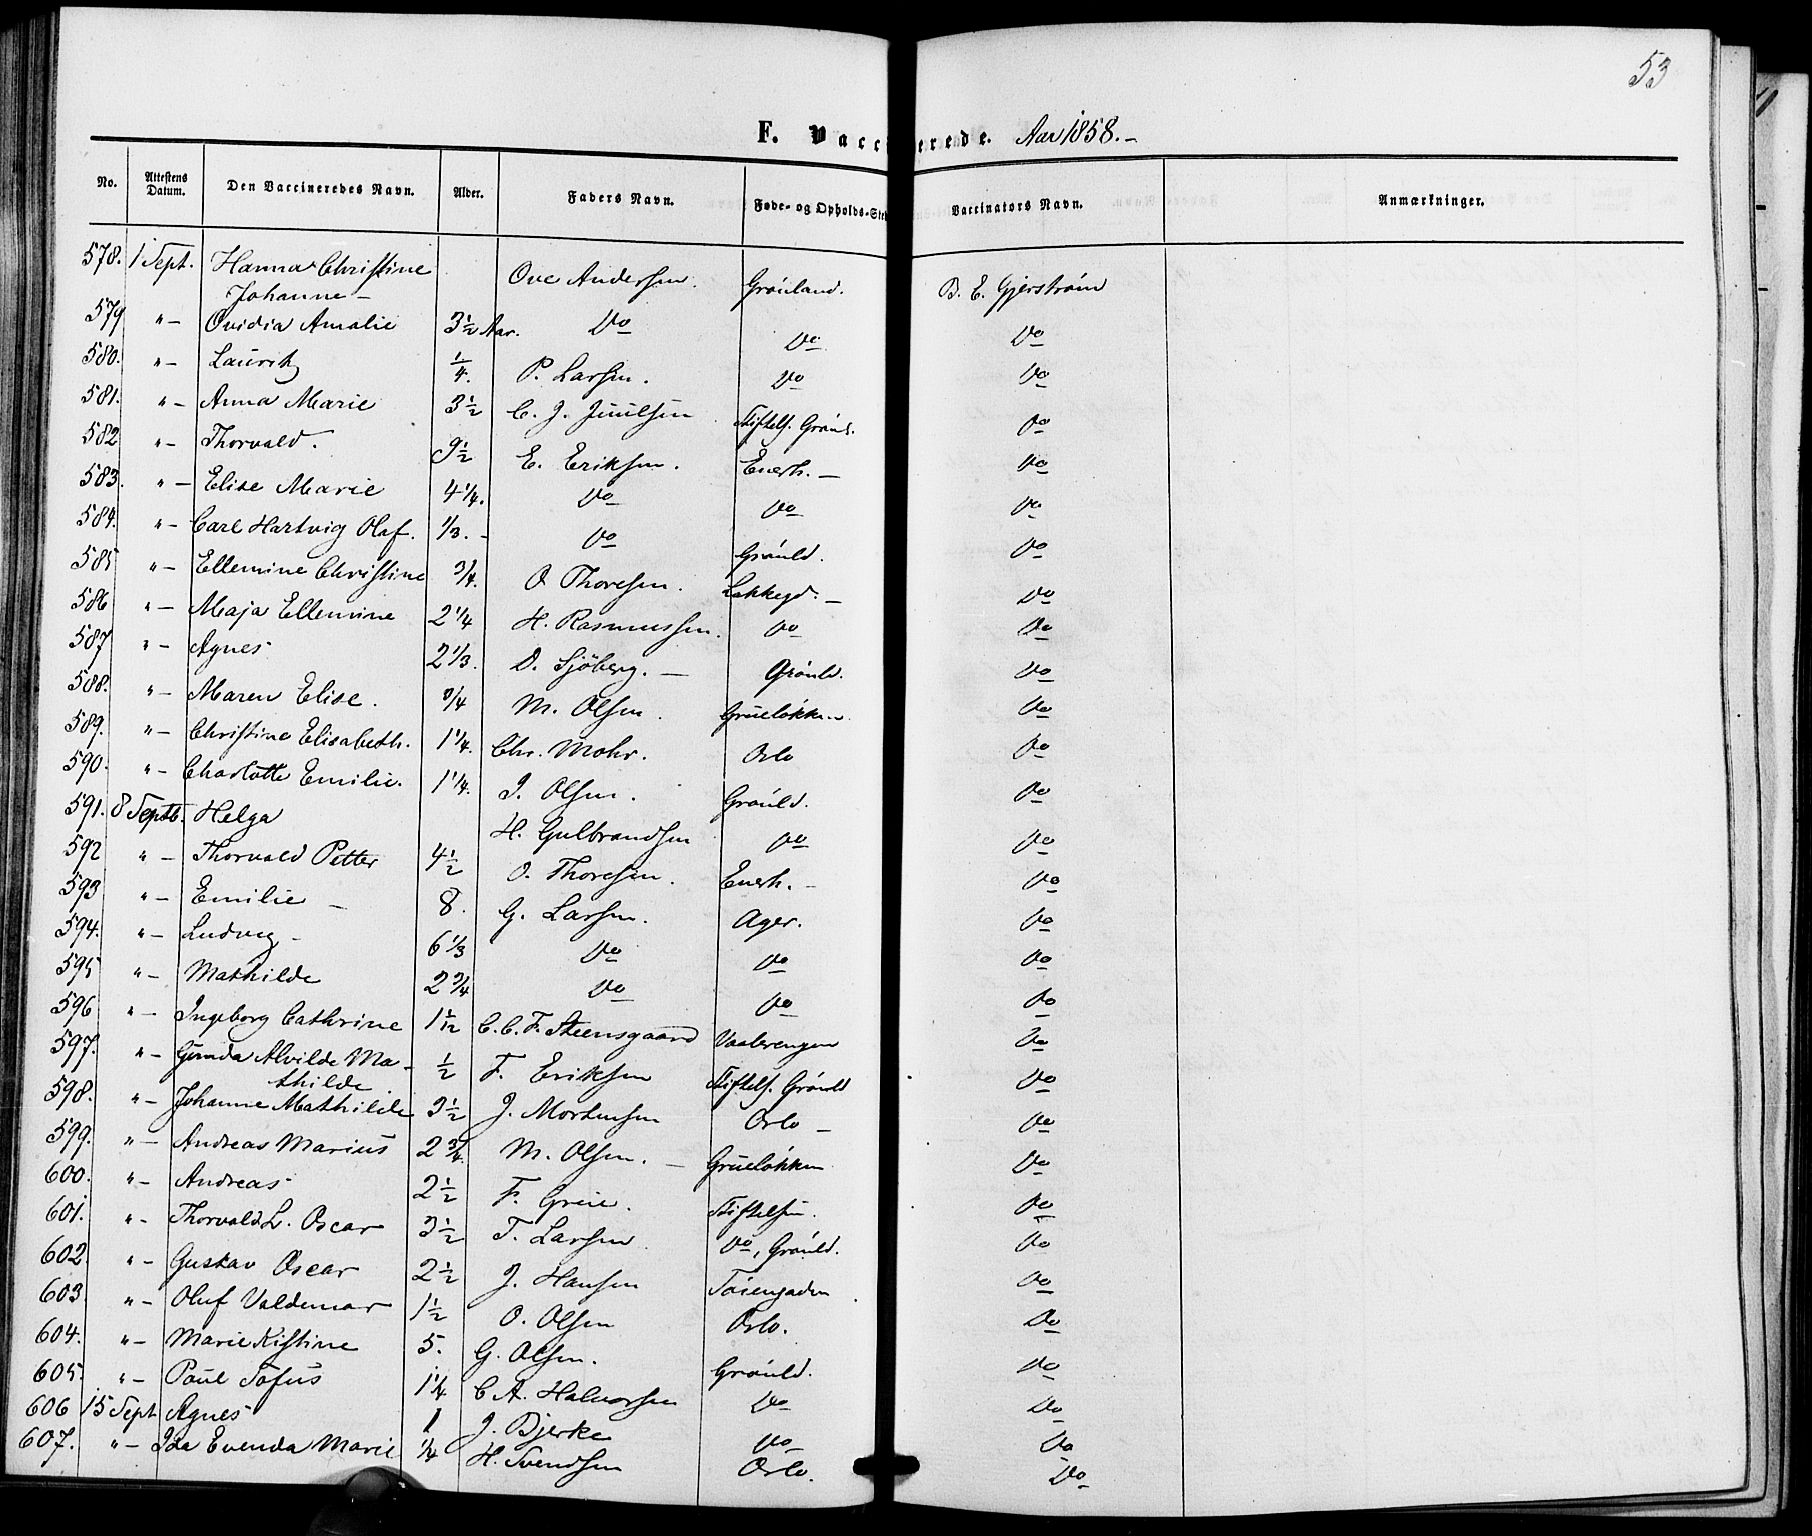 53
F. Vaccinerede. Aar 1858.-
No. Attestens Datum. Den Vaccineredes Navn. Alder. Faders Navn. Føde- og Opholds-Ste Vaccinators Navn. Anmærkninger.
578. 1 Sept. Hanna Christine Ove Andersen. Grønland. B. E. Gjerstrøm
Johanne -
579 " - Ovidia Amalie 3 1/2 Aar. Do Do Do
580. " - Lauritz 1/4. P. Larsen. Do Do
581. " - Anna Marie 3 1/2 C. J. Juulsen Stiftels. Grønl. Do
582 " - Thorvald. 9 1/2 E. Eriksen. Enerh. - Do
583. " - Elise Marie 4 1/4. Do Do Do
584. " - Carl Hartvig Olaf. 1/3. - Do Grønld. Do
585 " - Ellemine Christine 3/4. O Thoresen. Lakkegd. - Do
586 " - Maja Ellemine 2 1/4 H. Rasmussen. Do Do
587 " - Agnes 2 1/3. D. Sjöberg. - Grønld. Do
588. " - Maren Elise. 3/4 M. Olsen. Grueløkken Do
589. " - Christine Elisabeth. 1 1/4. Chr. Mohr. Oslo Do
590. " - Charlotte Emilie. 1 1/4. J. Olsen. Grønld. Do
591. 8 Septb. Helga H. Gulbrandsen Do Do
592 " - Thorvald Petter 4 1/2 O. Thoresen. Enerh. - Do
593 " - Emilie - 8. G. Larsen. Ager. Do
594. " - Ludvig - 6 1/3 Do Do Do
595 " - Mathilde 2 3/4 Do Do Do
596 " - Ingeborg Cathrine 1 1/12 C. C. F. Steensgaard Vaalerengen Do
597. " - Gunda Alvilde Ma- 1/2 F. Eriksen Stiftels. Grønld Do
thilde.
598. " - Johanne Mathilde 3 1/2 J. Mortensen Oslo - Do
599. " - Andreas Marius 2 3/4. M. Olsen. - Grueløkken Do
600. " - Andreas 2 1/2 F. Greie. Stiftelsen. Do
601. " - Thorvald L. Oscar 3 1/2 T. Larsen Do, Grønld. Do
602. " - Gustav Oscar 2 1/2 J. Hansen Tøiengaden. Do
603. " - Oluf Valdemar 1 1/2 O. Olsen Oslo. Do
604. " - Marie Kistine 5. G. Olsen. Grønld. Do
605. " - Paul Tofus 1 1/4 C A. Halvorsen Do Do
606 15 Sept Agnes 1 J. Bjerke Do Do
607. " - Ida Evenda Marie 1/4 H. Svendsen Oslo. Do